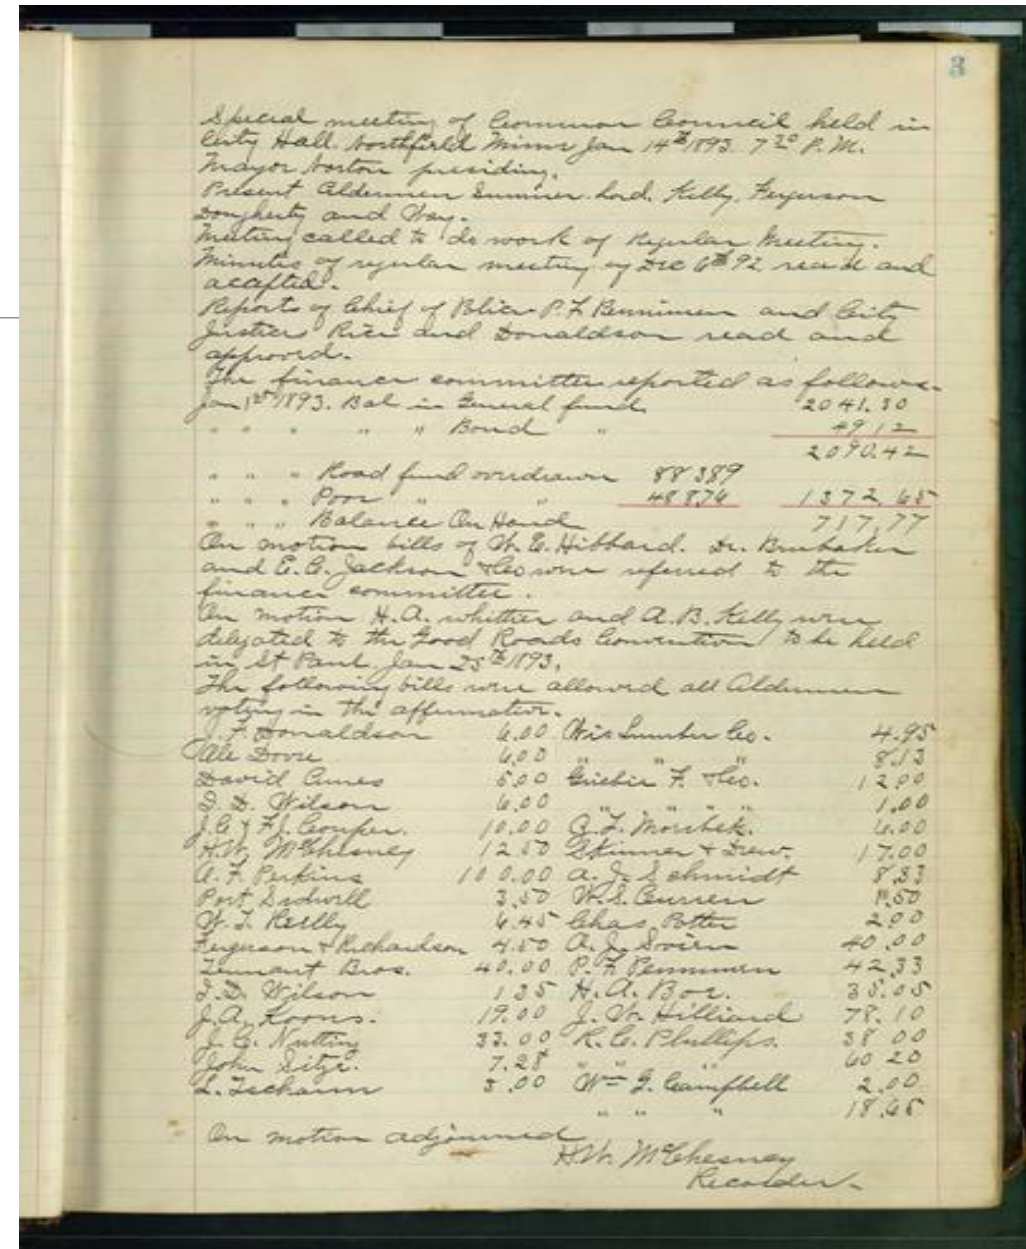 3
Special meeting of Common Council held in
City Hall. Northfield Minn Jan 14th 1893. 7 30 P.M.
Mayor Norton presiding.
Present Aldermen Sumner. Lord. Kelly. Ferguson
Dougherty and Way.
Meeting called to do work of Regular Meeting.
Minutes of regular meeting of Dec 6th 92 read and
accepted.
Reports of Chief of Police P. F. and City
Justice Rice and Donaldson read and
approved.
The finance committee reported as follows.
Jan 1st 1893. Bal in General fund 2041.30
" " " " " Bond " 49 12
2090.42
" " " Road fund overdrawn 883 89
" " " Poor " " 488.76 1372.65
" " " Balance On Hand 717.77
On motion bills of W. E. Hibbard. Dr. Brubaker
and E. C. Jackson & Co were referred to the
finance committee.
On motion H. A. Whittier and A. B. Kelly were
delegated to the Good Roads Convention to be held
in St Paul. Jan 25th 1893.
The following bills were allowed all Aldermen
voting in the affirmative.
J. F. Donaldson 6.00 Wis Lumber Co. 4.95
Ole Dovre 6.00 " " " 8.13
David Ames 5.00 F. & Co. 12.00
I. D. Wilson 6.00 " " " " 1.00
J. C. & F. J. Couper. 10.00 6.00
H. W. McChesney 12.50 Skinner & Drew. 17.00
A. F. Perkins 100.00 A. J. Schmidt 8.33
Port. Sidwell 3.50 W. S. 1.50
W. J. Reilly 6.45 Chas Potter 2.00
Ferguson & Richardson 4.50 A. J. 40.00
Tennant Bros. 40.00 P. F. 42.33
I. D. Wilson 1 35 H. A. Boe. 35.05
J. A. Loons. 19.00 J. W. Hilliard 78.10
J. C. Nutting 33.00 R. C. Phillips. 38 00
John 7.28 " " " 60 20
L. Tschann 3.00 Wm J. Campbell 2.00
" " " 18.65
On motion adjourned
H. W. McChesney
Recorder.